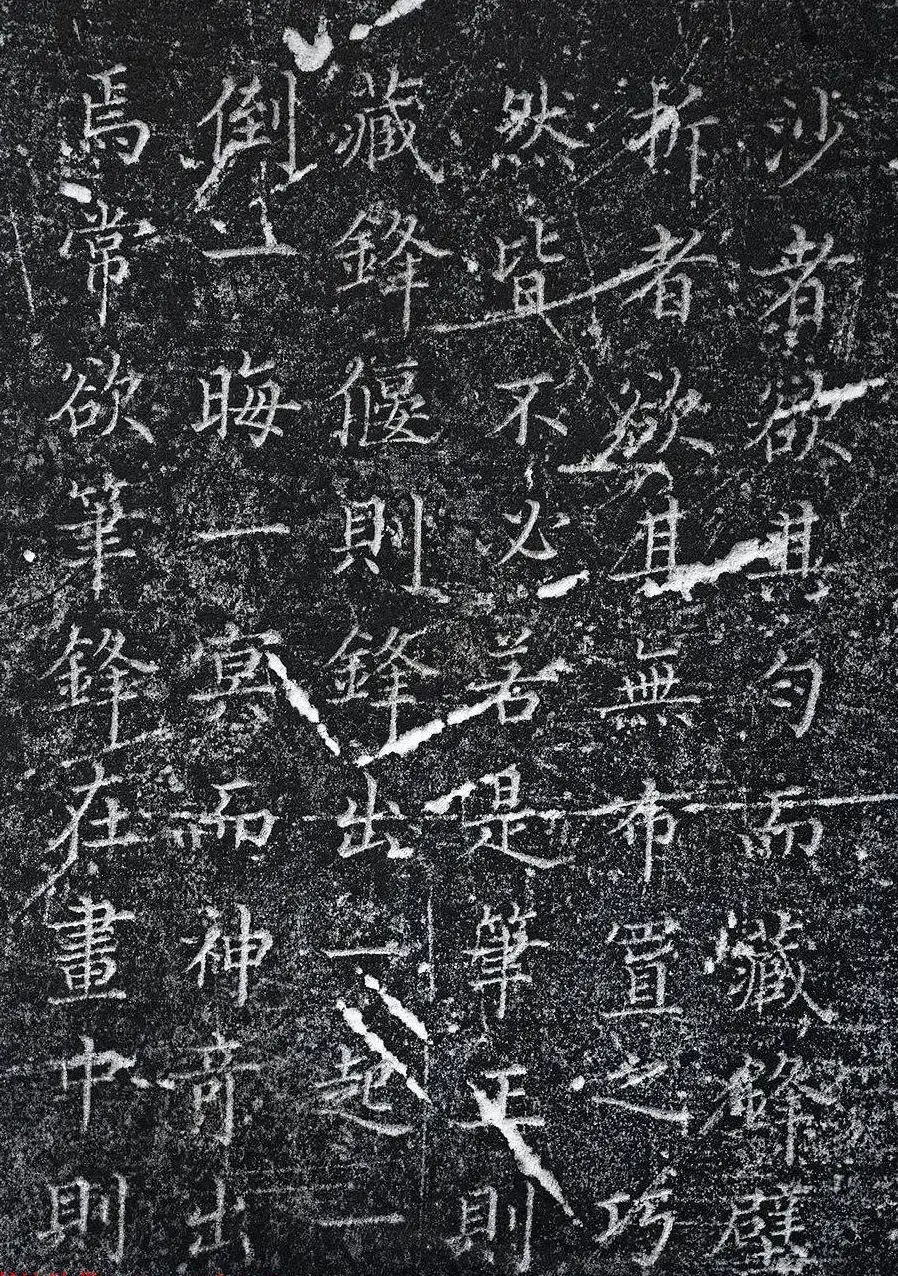 沙者欲其勻而藏鋒壁
拆者欲其無布置之巧
然皆不必若是筆正則
藏鋒偃則鋒出一起一
倒一晦一冥而神奇出
焉常欲筆鋒在畫中則